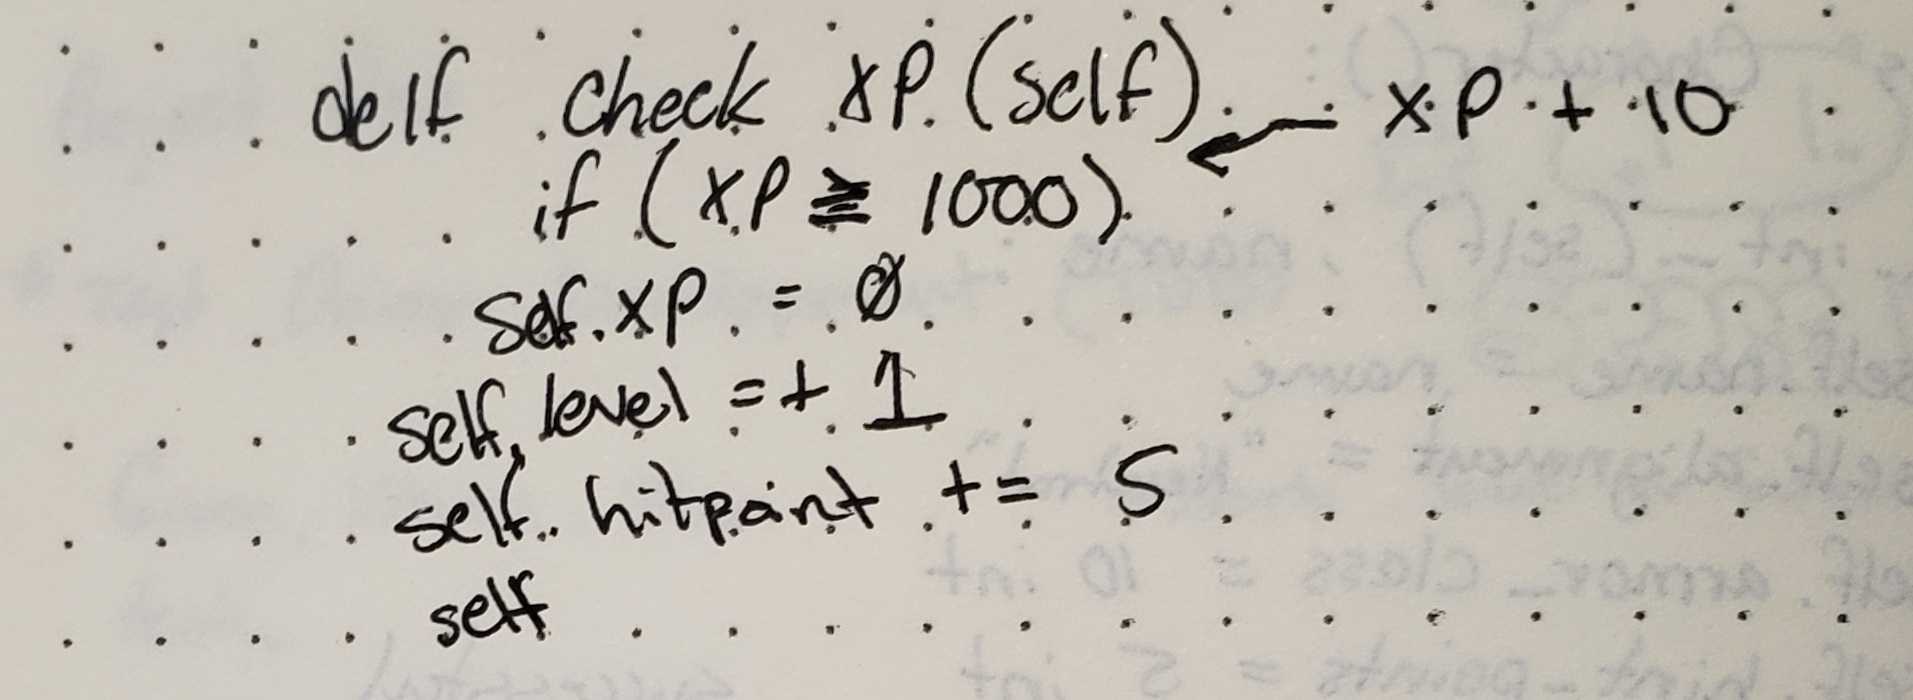 delf check XP (self) ← XP + 10
if (XP ≥ 1000)
self.XP = 0
self.level =+ 1
self.hitpoint += 5
self